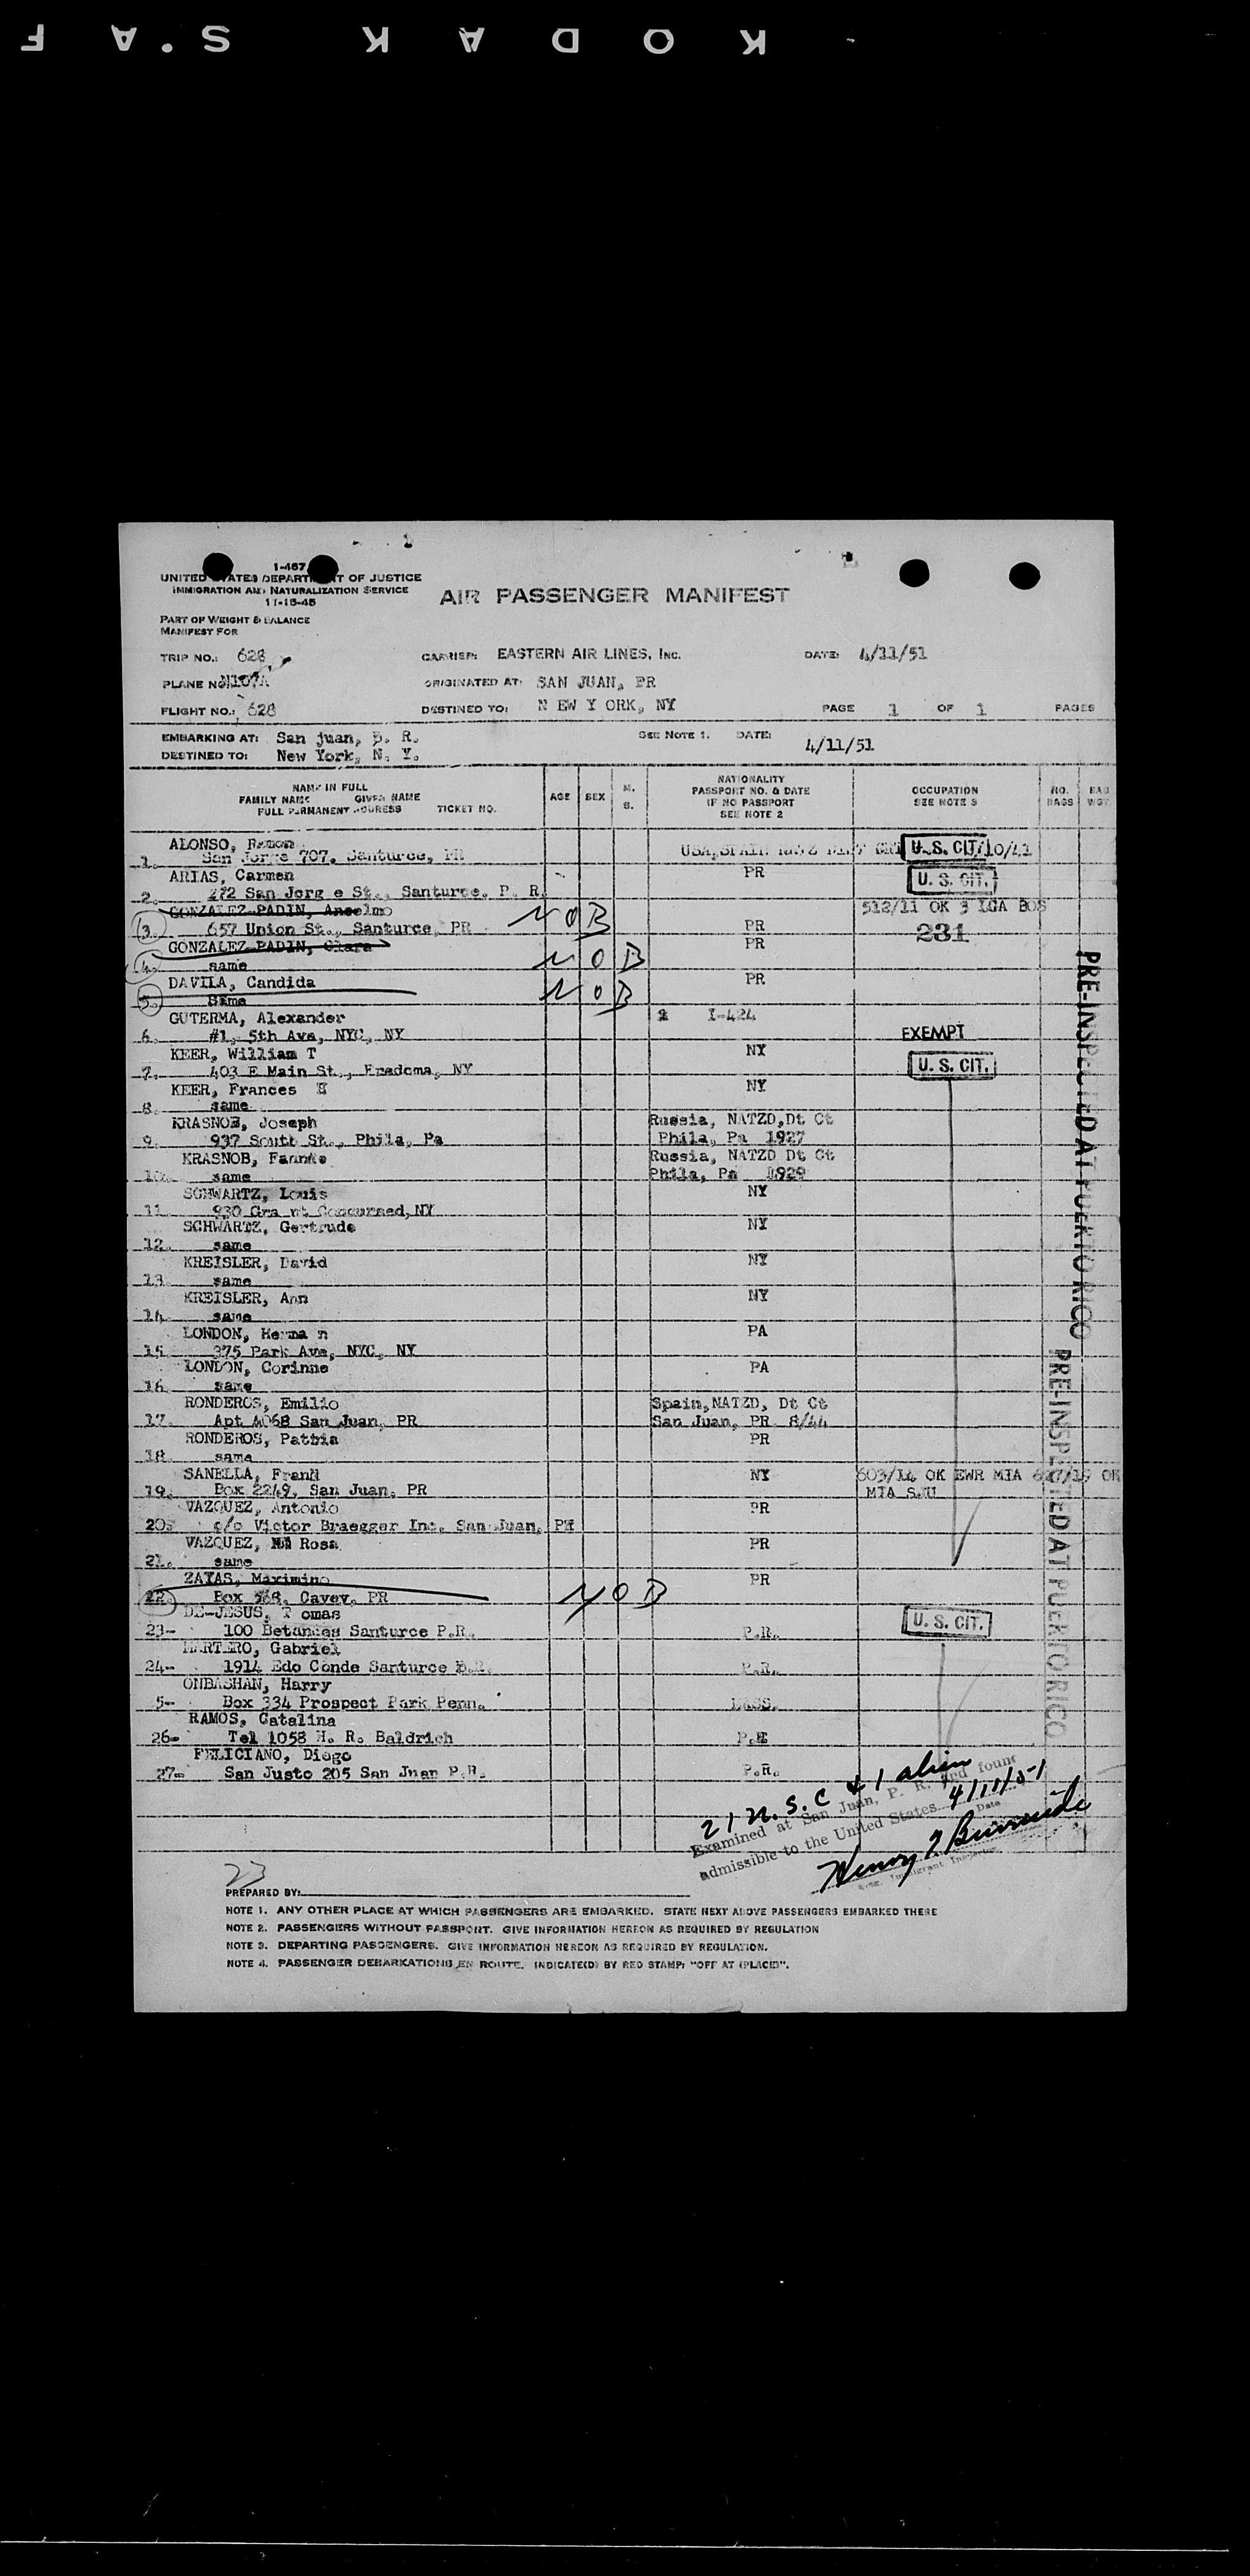 KODAK S.A F
I-467
UNITED STATES DEPARTMENT OF JUSTICE
IMMIGRATION AND NATURALIZATION SERVICE
11-15-45
AIR PASSENGER MANIFEST
PART OF WEIGHT & BALANCE
MANIFEST FOR
TRIP NO.: 628 CARRIER: EASTERN AIR LINES, INC. DATE: 4/11/51
PLANE NO. N107A ORIGINATED AT: SAN JUAN, PR
FLIGHT NO.: 628 DESTINED TO: N EW Y ORK, NY PAGE 1 OF 1 PAGES
EMBARKING AT: San juan, P. R. SEE NOTE 1. DATE: 4/11/51
DESTINED TO: New York, N. Y.
NAME IN FULL
FAMILY NAME GIVEN NAME
FULL PERMANENT ADDRESS TICKET NO.
AGE SEX M. S.
NATIONALITY
PASSPORT NO. & DATE
IF NO PASSPORT
SEE NOTE 2
OCCUPATION
SEE NOTE 3
NO. BAGS
BAG WGT.
ALONSO, Ramon
1. San Jorge 707, Santurce, PR USA, SPAIN U. S. CIT. /10/41
ARIAS, Carmen PR U. S. CIT.
2. 272 San Jorg e St., Santurce, P. R.
GONZALEZ PADIN, Anselmo NOB 512/11 OK 3 LGA BOS
3. 657 Union St., Santurce, PR PR 231
GONZALEZ PADIN, Clara PR
4. same NOB
DAVILA, Candida PR
5. Same NOB
GUTERMA, Alexander I-424
6. #1, 5th Ave, NYC, NY EXEMPT
KEER, William T NY U. S. CIT.
7. 403 E Main St., Fredoma, NY
KEER, Frances E NY
8. same
KRASNOB, Joseph Russia, NATZD,Dt Ct
9. 937 Scutt St., Phila, Pa Phila, Pa 1927
KRASNOB, Fannie Russia, NATZD Dt Ct
10. same Phila, Pa 1929
SCHWARTZ, Louis NY
11. 930 Gra nt Concoursed, NY
SCHWARTZ, Gertrude NY
12. same
KREISLER, David NY
13. same
KREISLER, Ann NY
14. same
LONDON, Herma n PA
15. 375 Park Ave, NYC, NY
LONDON, Corinne PA
16. same
RONDEROS, Emilio Spain,NATZD, Dt Ct
17. Apt 4068 San Juan, PR San Juan, PR 8/44
RONDEROS, Patbia PR
18. same
SANELLA, Frank NY 603/14 OK EWR MIA 627/15 OK
19. Box 2249, San Juan, PR MIA SJU
VAZQUEZ, Antonio PR
20. c/o Victor Braegger Inc, San Juan, PR
VAZQUEZ, Rosa PR
21. same
ZAYAS, Maximino PR
22. Box 568, Cayey, PR NOB
DE-JESUS, T omas U. S. CIT.
23- 100 Betances Santurce P.R. P.R.
MARTERO, Gabriel
24- 1914 Edo Conde Santurce P.R. P.R.
ONBASHAN, Harry
5- Box 334 Prospect Park Penn. MASS.
RAMOS, Catalina
26- Tel 1058 H. R. Baldrich P.R
FELICIANO, Diego
27- San Justo 205 San Juan P.R. P.R.
PRE-INSPECTED AT PUERTO RICO
PRE-INSPECTED AT PUERTO RICO
21 U.S.C & 1 alien
Examined at San Juan, P. R. and found
admissible to the United States 4/11/51
Date
Henry J Burnside
Immigrant Inspector
23
PREPARED BY:
NOTE 1. ANY OTHER PLACE AT WHICH PASSENGERS ARE EMBARKED. STATE NEXT ABOVE PASSENGERS EMBARKED THERE
NOTE 2. PASSENGERS WITHOUT PASSPORT. GIVE INFORMATION HEREON AS REQUIRED BY REGULATION
NOTE 3. DEPARTING PASSENGERS. GIVE INFORMATION HEREON AS REQUIRED BY REGULATION.
NOTE 4. PASSENGER DEBARKATIONS EN ROUTE. INDICATE(D) BY RED STAMP: "OFF AT (PLACE)".